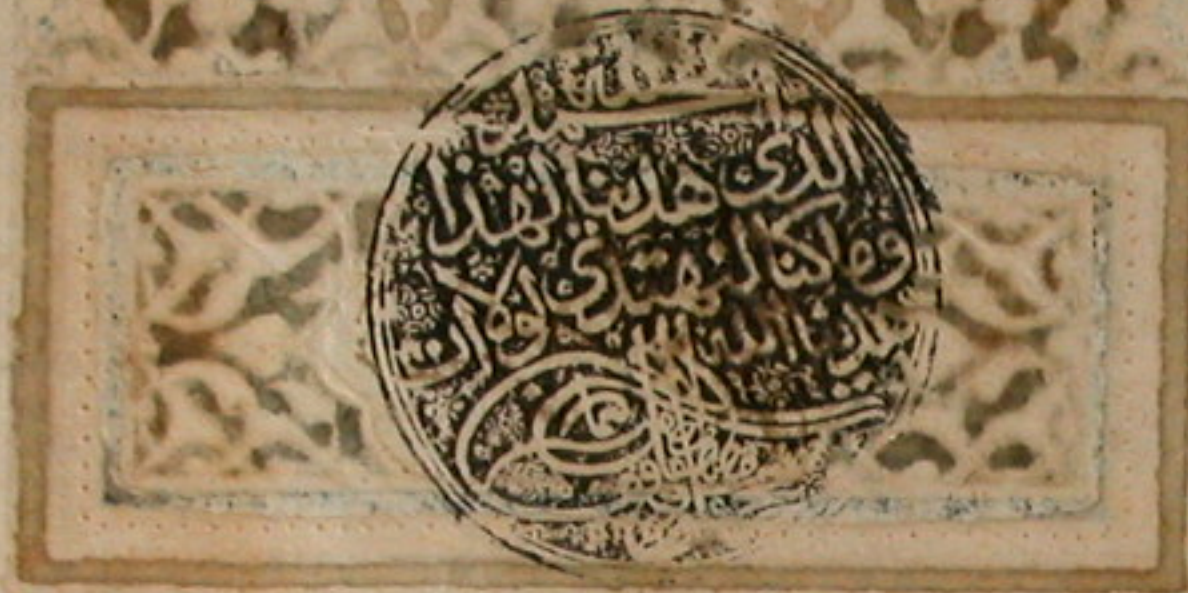 الحمد لله
الذى هدينا لهذا
وما كنا لنهتدى لولا ان
هدينا الله